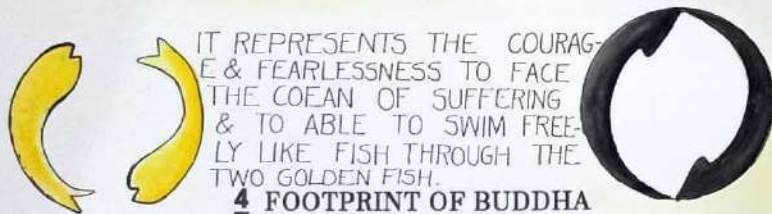 IT REPRESENTS THE COURAG-
E & FEARLESSNESS TO FACE
THE COEAN OF SUFFERING
& TO ABLE TO SWIM FREE-
LY LIKE FISH THROUGH THE
TWO GOLDEN FISH.
4 FOOTPRINT OF BUDDHA